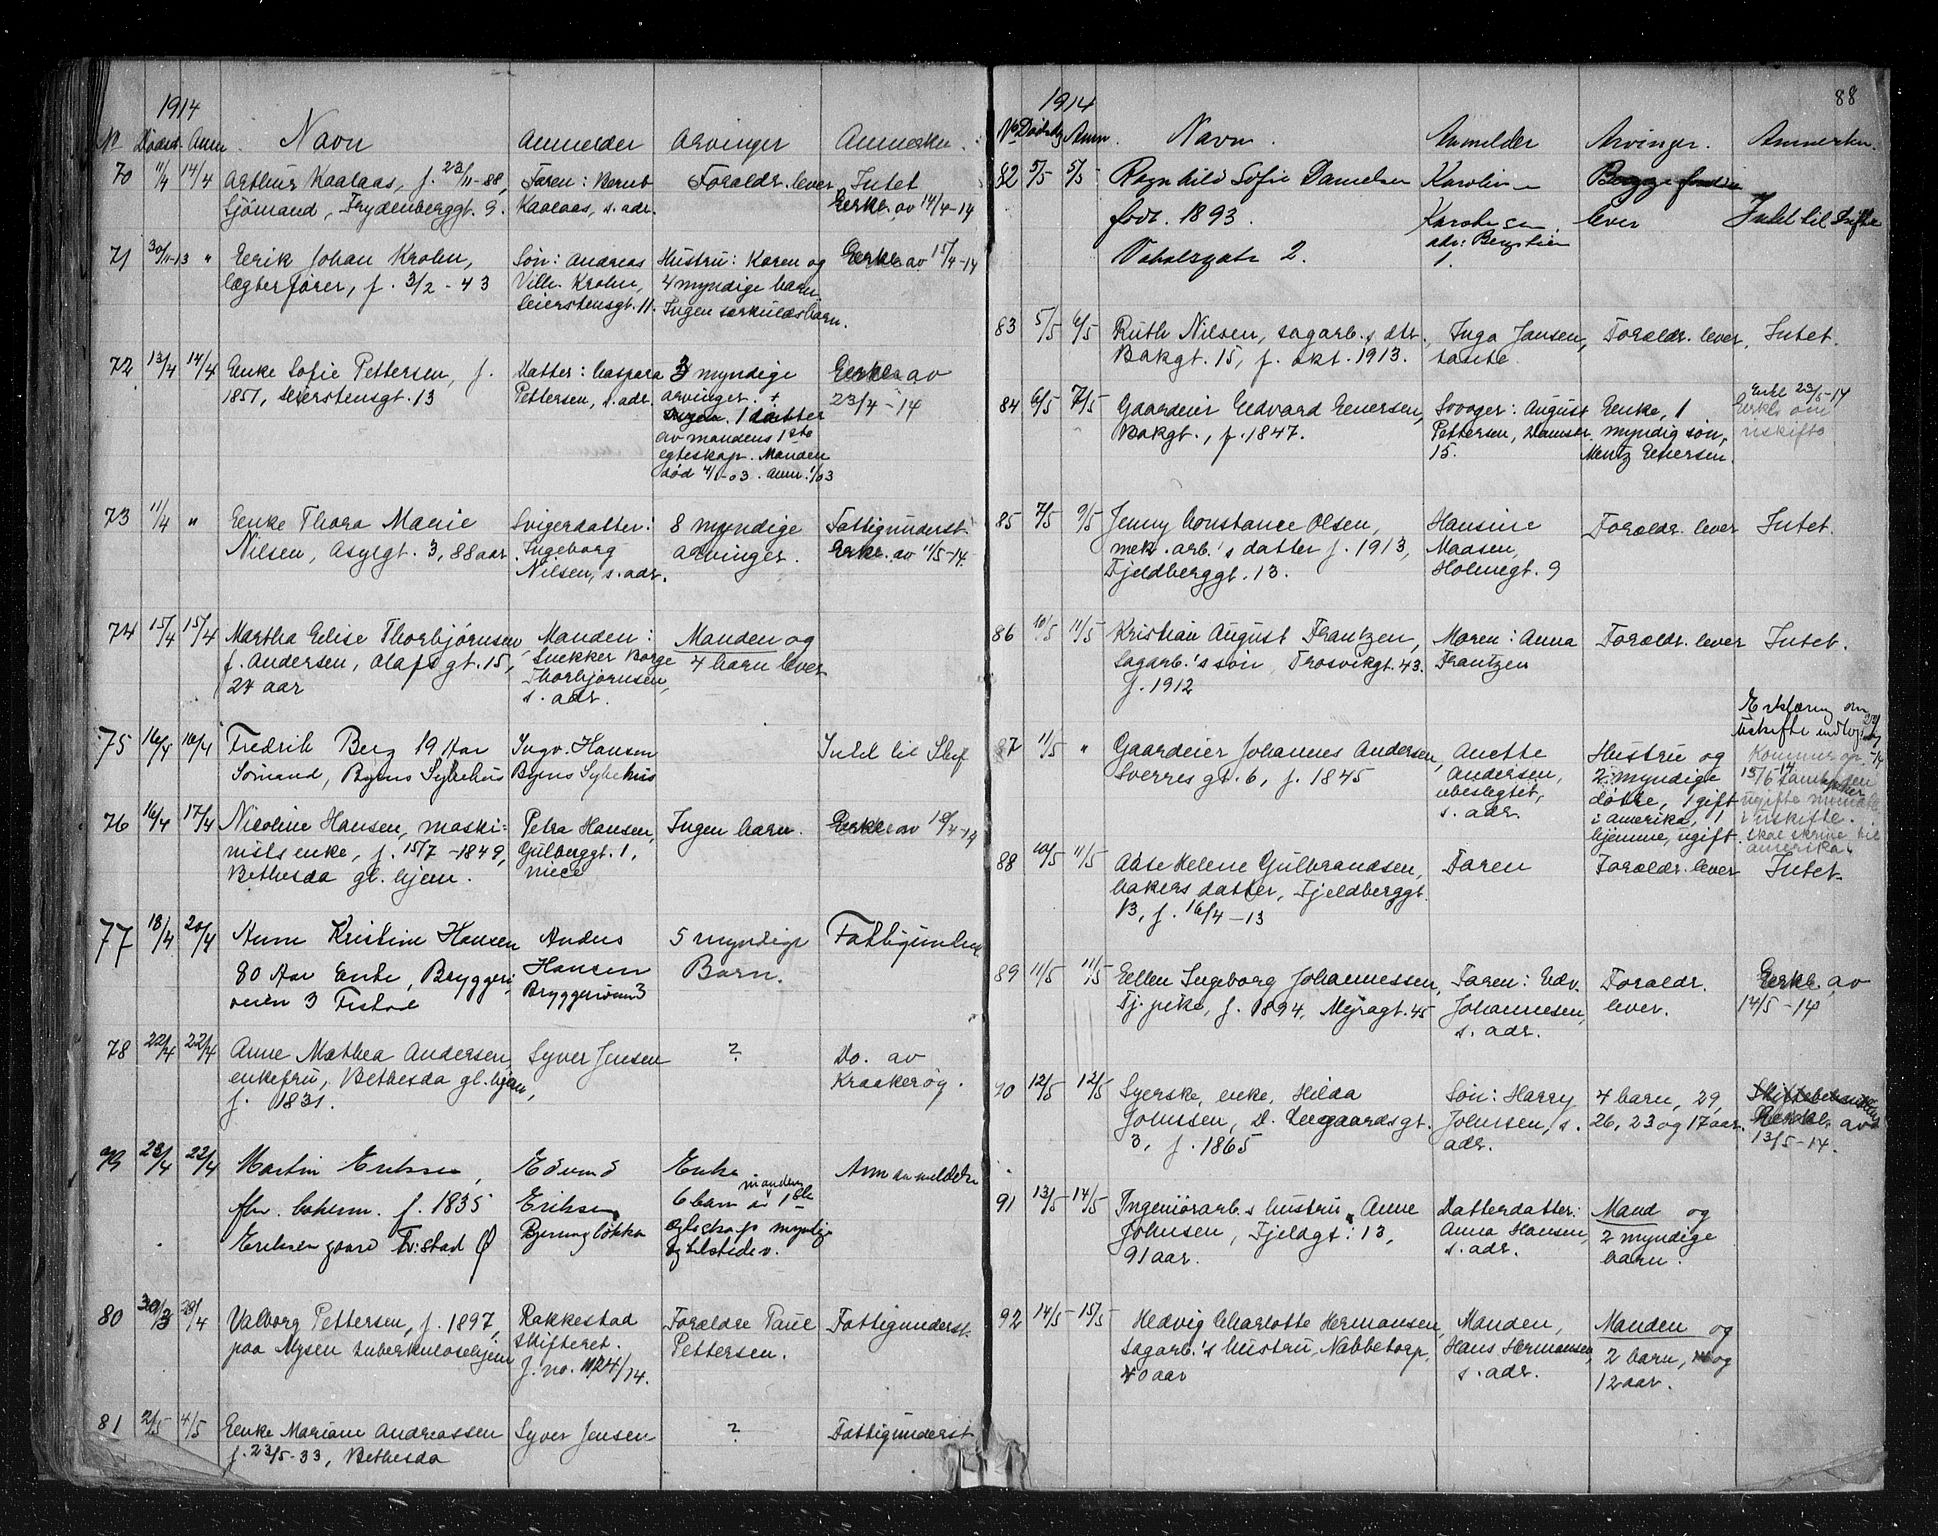 1914
No Dødsd. Anm. Navn Anmelder Arvinger Anmerkn.
70 11/4 14/4 Arthur Kaalaas, f. 23/11-88, Faren: Bernt Foraldr. lever Intet
Sjömand, Frydenberggt. 9. Kaalaas, s. adr. Erkl. av 14/4-14
71 30/11-13 " Erik Johan Krohn, Sön: Andreas Hustru: Karen og Erkl. av 15/4-14
lægterfører, f. 3/2-43 Vilh. Krohn, 4 myndige barn
Leierstensgt. 11. Ingen særkuldsbarn.
72 13/4 14/4 Enke Sofie Pettersen, f. Datter: Caspara 3 myndige Erkl. av
1851, Leierstensgt. 13 Pettersen, s. adr. arvinger. + 23/4-14
1 datter
av mandens 1ste
egteskap. Manden
död 4/1-03. Anm. 1/03
73 11/4 " Enke Thora Marie Svigerdatter: 8 myndige Fattigunderst.
Nilsen, Asylgt. 3, 88 aar Ingeborg arvinger. Erkl. av 11/5-14.
Nilsen, s. adr.
74 15/4 15/4 Martha Elise Thorbjørnsen, Manden: Manden og
f. Andersen, Olafs gt. 15, Snekker Borge 4 barn lever
27 aar Thorbjørnsen,
s. adr.
75 16/4 16/4 Fredrik Berg 19 Aar Ingv. Hansen Intet til Skif
Sömand, Byens Sykehus Byens Sykehus
76 16/4 17/4 Nicoline Hansen, maski- Petra Hansen, Ingen barn. Erkl. av 18/4-14
nists enke, f. 15/7-1849, Gulberggt. 1,
Bethesda gl. hjem. niece
77 18/4 20/4 Anne Kristine Hansen Anders 5 myndige Fattigunderst
80 Aar Enke, Bryggeri- Hansen Barn.
veien 3 Fr.stad Bryggeriveien 3
78 22/4 22/4 Anne Mathea Andersen, Syver Jensen ? Do. av
enkefru, Bethesda gl. hjem, Kraakerøy.
f. 1831.
79 22/4 22/4 Martin Eriksen, Edvind Enke.
f. 1835 Eriksen 6 barn av mandens 1ste
Eriksengaard Fr:stad Ø Bjerungløkka egteskap myndige
og tilstedev.
80 30/3 28/4 Valborg Pettersen, f. 1897, Rakkestad Forældre Paul Fattigunderst.
paa Mysen tuberkulosehjem Skifteret. Pettersen.
J. no. 1124/14.
81 2/5 4/5 Enke Mariane Andreassen Syver Jensen ? Fattigunderst
f. 23/5-33, Bethesda
88
1914
No Dødsdg Anm. Navn. Anmelder Arvinger. Anmerkn.
82 5/5 5/5 Ragnhild Sofie Danielsen Karoline
födt. 1893. Karolusen lever Intet til Skifte
Vahalsgate 2. adr: Bergstien
1.
83 5/5 6/5 Ruth Nilsen, sagarb.s dtr. Inga Jansen, Foraldr. lever. Intet.
Bakgt. 15, f. okt. 1913. tante
84 6/5 7/5 Gaardeier Edvard Enersen, Svoger: August Enke, 1 Erkl. 23/5-14
Bakgt., f. 1847. Pettersen, Damstr. myndig sön, Erkl. om
15. Mentz Enersen. uskifte
85 7/5 9/5 Jenny Constance Olsen, Hansine Foraldr. lever Intet.
mek. arb.'s datter f. 1913, Madsen,
Fjeldberggt. 13. Holmegt. 9
86 10/5 11/5 Kristian August Frantzen, Moren: Anna Foraldr. lever Intet.
Sagarb.'s sön, Trosvikgt. 43. Frantzen
f. 1912
Erklæring om
uskifte
87 11/5 " Gaardeier Johannes Andersen, Anette Hustru og
Sverres gt. 6, f. 1845 Andersen, 2 myndige 15/6-14
ubeslegtet, døtre, 1 gift
s. adr. i Amerika, 1 i uskifte.
hjemme, ugift. skal skrive til
Amerika.
88 10/5 11/5 Aase Helene Gulbrandsen, Faren Foraldr. lever Intet.
bakers datter, Fjeldberggt.
13, f. 16/4-13
89 11/5 11/5 Ellen Ingeborg Johannessen, Faren: Edv. Foraldr. Erkl. av
Tj. pike, f. 1894, Mejragt. 45 Johannesen, lever. 14/5-14
s. adr.
90 12/5 12/5 Syerske, enke, Hilda Sön: Harry 4 barn, 29,
Johnsen, D. Leegaardsgt. Johnsen, s. 26, 23 og 17 aar. av
3, f. 1865 adr. 13/5-14.
91 13/5 14/5 Ingeniörarb.s hustru Anne Datterdatter: Mand og
Johnsen, Fjeldgt: 13, Anna Hansen, 2 myndige
91 aar. s. adr. barn.
92 14/5 15/5 Hedvig Charlotte Hermansen, Manden, Manden og
sagarb.'s hustru, Nabbetorp, Hans Hermansen, 2 barn, og
40 aar s. adr. 12 aar.